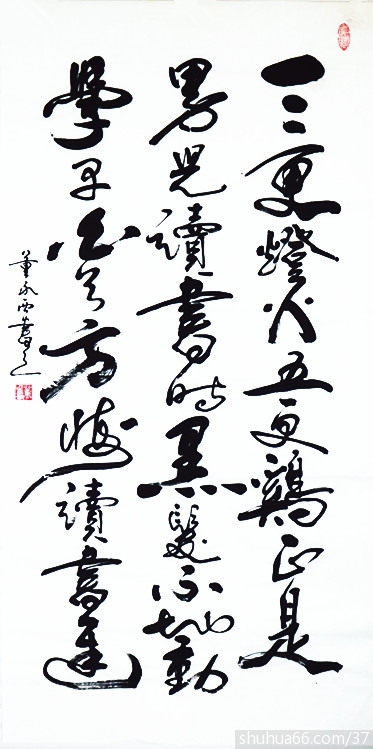 三更燈火五更鷄正是
男兒讀書時黑髮不知勤
學早白首方悔讀書遲
董永西書之
shuhua66.com/37